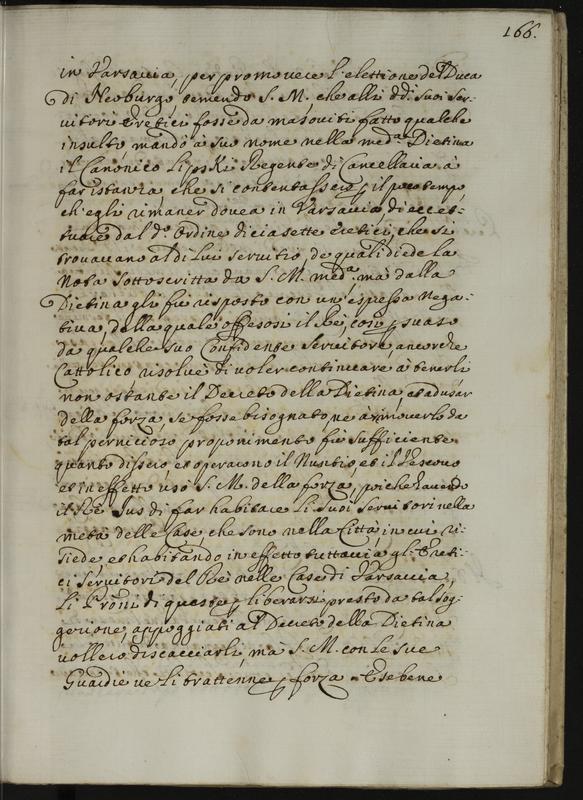 166.
in Varsavia, per promovere l'elettione del Duca
di Neoburgo temendo S. M., che alli dd.i suoi ser-
vitori Eretici fosse da masoviti fatto qualche
insulto mandò a suo nome nella med.a Dietina
il Canonico Lipski Regente di Cancellaria à
far istanza, che si contentassero p il poco tempo
ch'egli rimaner dovea in Varsavia di eccet-
tuare dal d.o Ordine diciasette eretici, che si
trovavano al di Lui servitio, de quali diede la
Nota sottoscritta da S. M. med.a, mà dalla
Dietina gli fù risposto con un'espressa Nega-
tiva, della quale offesosi il Rè, con p suaso
da qualche suo Confidente Servitore, ancorche
Cattolico risolvè di voler continuare à tenerli
non ostante il Decreto della Dietina, et ad usar
della forza, se fosse bisognato, ne à rimoverlo da
tal pernicioso proponimento fù sufficiente
quanto dissero, et operarono il Nuntio, et il Vescovo
et in effetto usò S. M. della forza, poiche havendo
il Rè Jus di far habitare li suoi servitori nella
metà delle Case, che sono nella Città, in cui ri-
siede, et habitando in effetto tuttavia gli Ereti-
ci servitori del Rè nelle Case di Varsavia,
Li Proni di queste p liberarsi presto da tal sog-
gezione, appoggiati al Decreto della Dietina
vollero discacciarli, mà S. M. con le sue
Guardie ve li trattenne p forza. E se bene